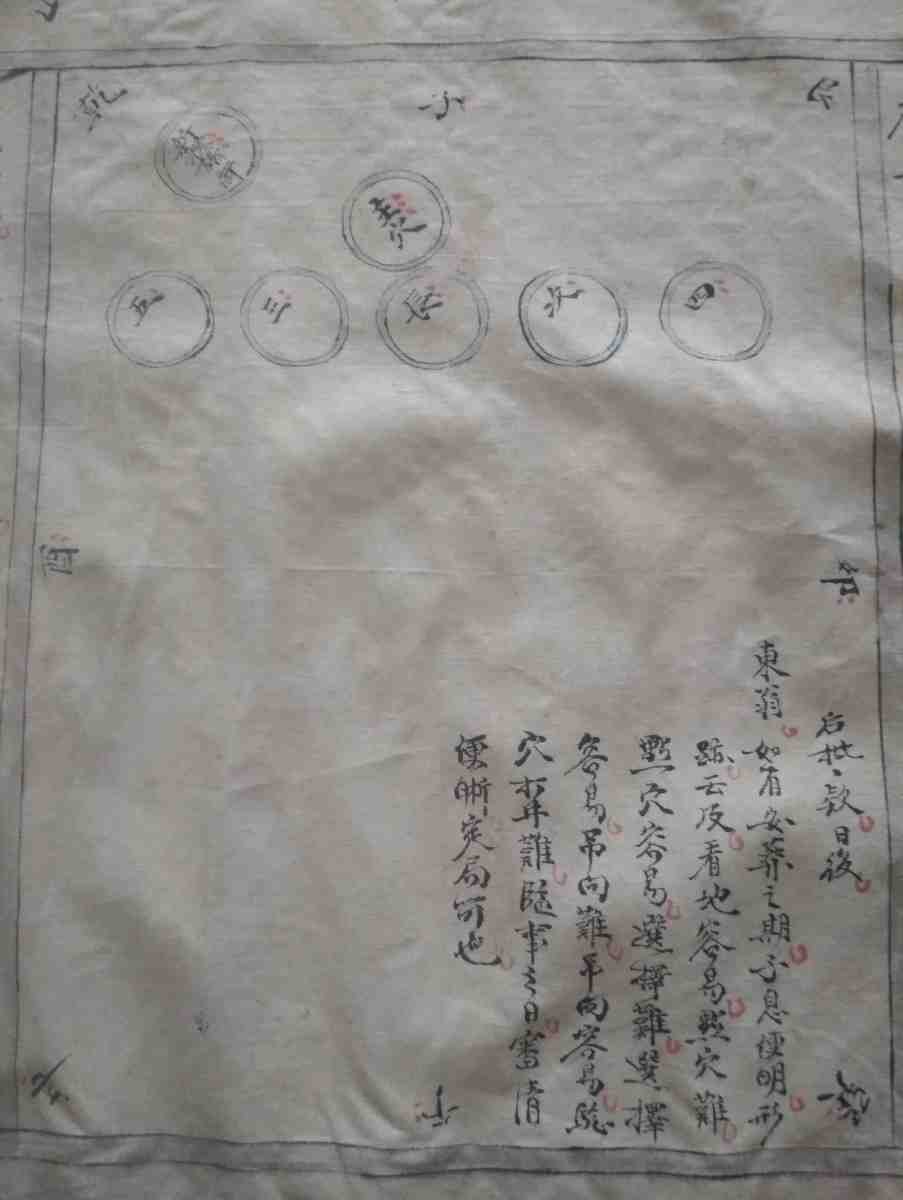 乾
子
艮
主穴
五
三
長
次
四
酉
卯
右批之款日後
東翁如有安葬之期不息便明形
跡云及看地容易點穴難
點穴容易選擇難選擇
容易吊向難吊向容易
穴難臨事之日審清
便晰定局可也
坤
午
巽